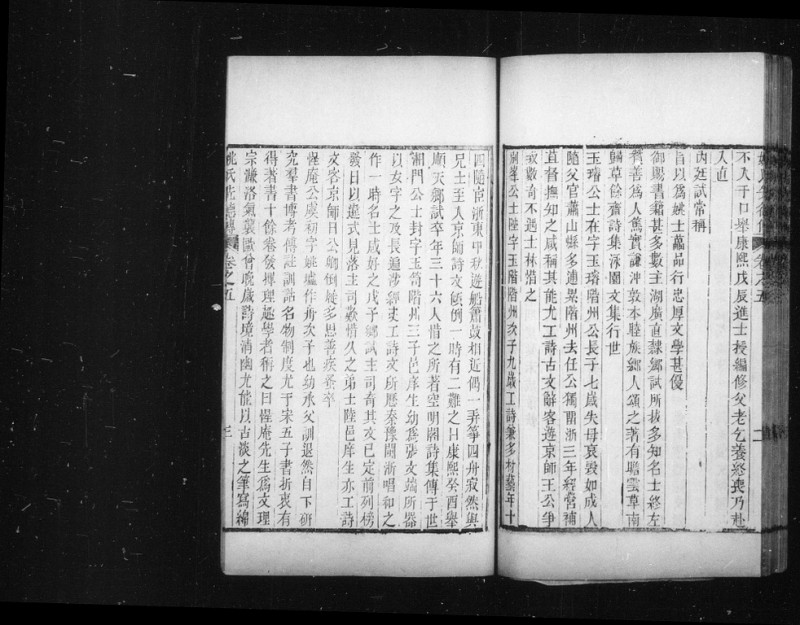 不入于口舉康熙戊辰進士授編修父老乞養終喪乃赴
入直
內廷試常稱
旨以為姚士藟品行忠厚文學甚優
御賜書籍甚多數主湖廣直隸鄉試所拔多知名士終左
贊善為人篤實謙沖敦本睦族鄉人頌之著有瞻雲草南
歸草餘齋詩集泳園文集行世
玉璿公士在字玉璿階州公長子七歲失母哀毀如成人
隨父官蕭山縣多逋累階州去任公獨留浙三年經營補
苴督撫知之咸稱其能尤工詩古文辭客遊京師王公爭
致數奇不遇士林惜之
公士陛字玉階階州次子九歲工詩兼多材藝年十
四隨宦浙東中秋遊船簫鼓相近偶一弄箏四舟寂然與
兄士至入京師詩文傾倒一時有二難之目康熙癸酉舉
順天鄉試卒年三十六人惜之所著空明閣詩集傳于世
湘門公士封字玉笥階州三子邑庠生幼為張文端所器
以女字之及長遍涉經史工詩文所歷秦豫閩浙唱和之
作一時名士咸好之戊子鄉試主司奇其文已定前列榜
發日以違式見落主司歎惜久之弟士陸邑庠生亦工詩
文客京師日公卿倒屣多思善疾蚤卒
惺庵公虞初字姚墟作舟次子也幼承父訓退然自下研
究羣書博考傳註訓詁名物制度尤于宋五子書折衷有
得著書十餘卷發揮理趣學者稱之曰惺庵先生為文理
宗濂洛氣襲歐曾晚歲詩境清幽尤能以古淡之筆寫綿
姚氏先德傳 卷之五 三